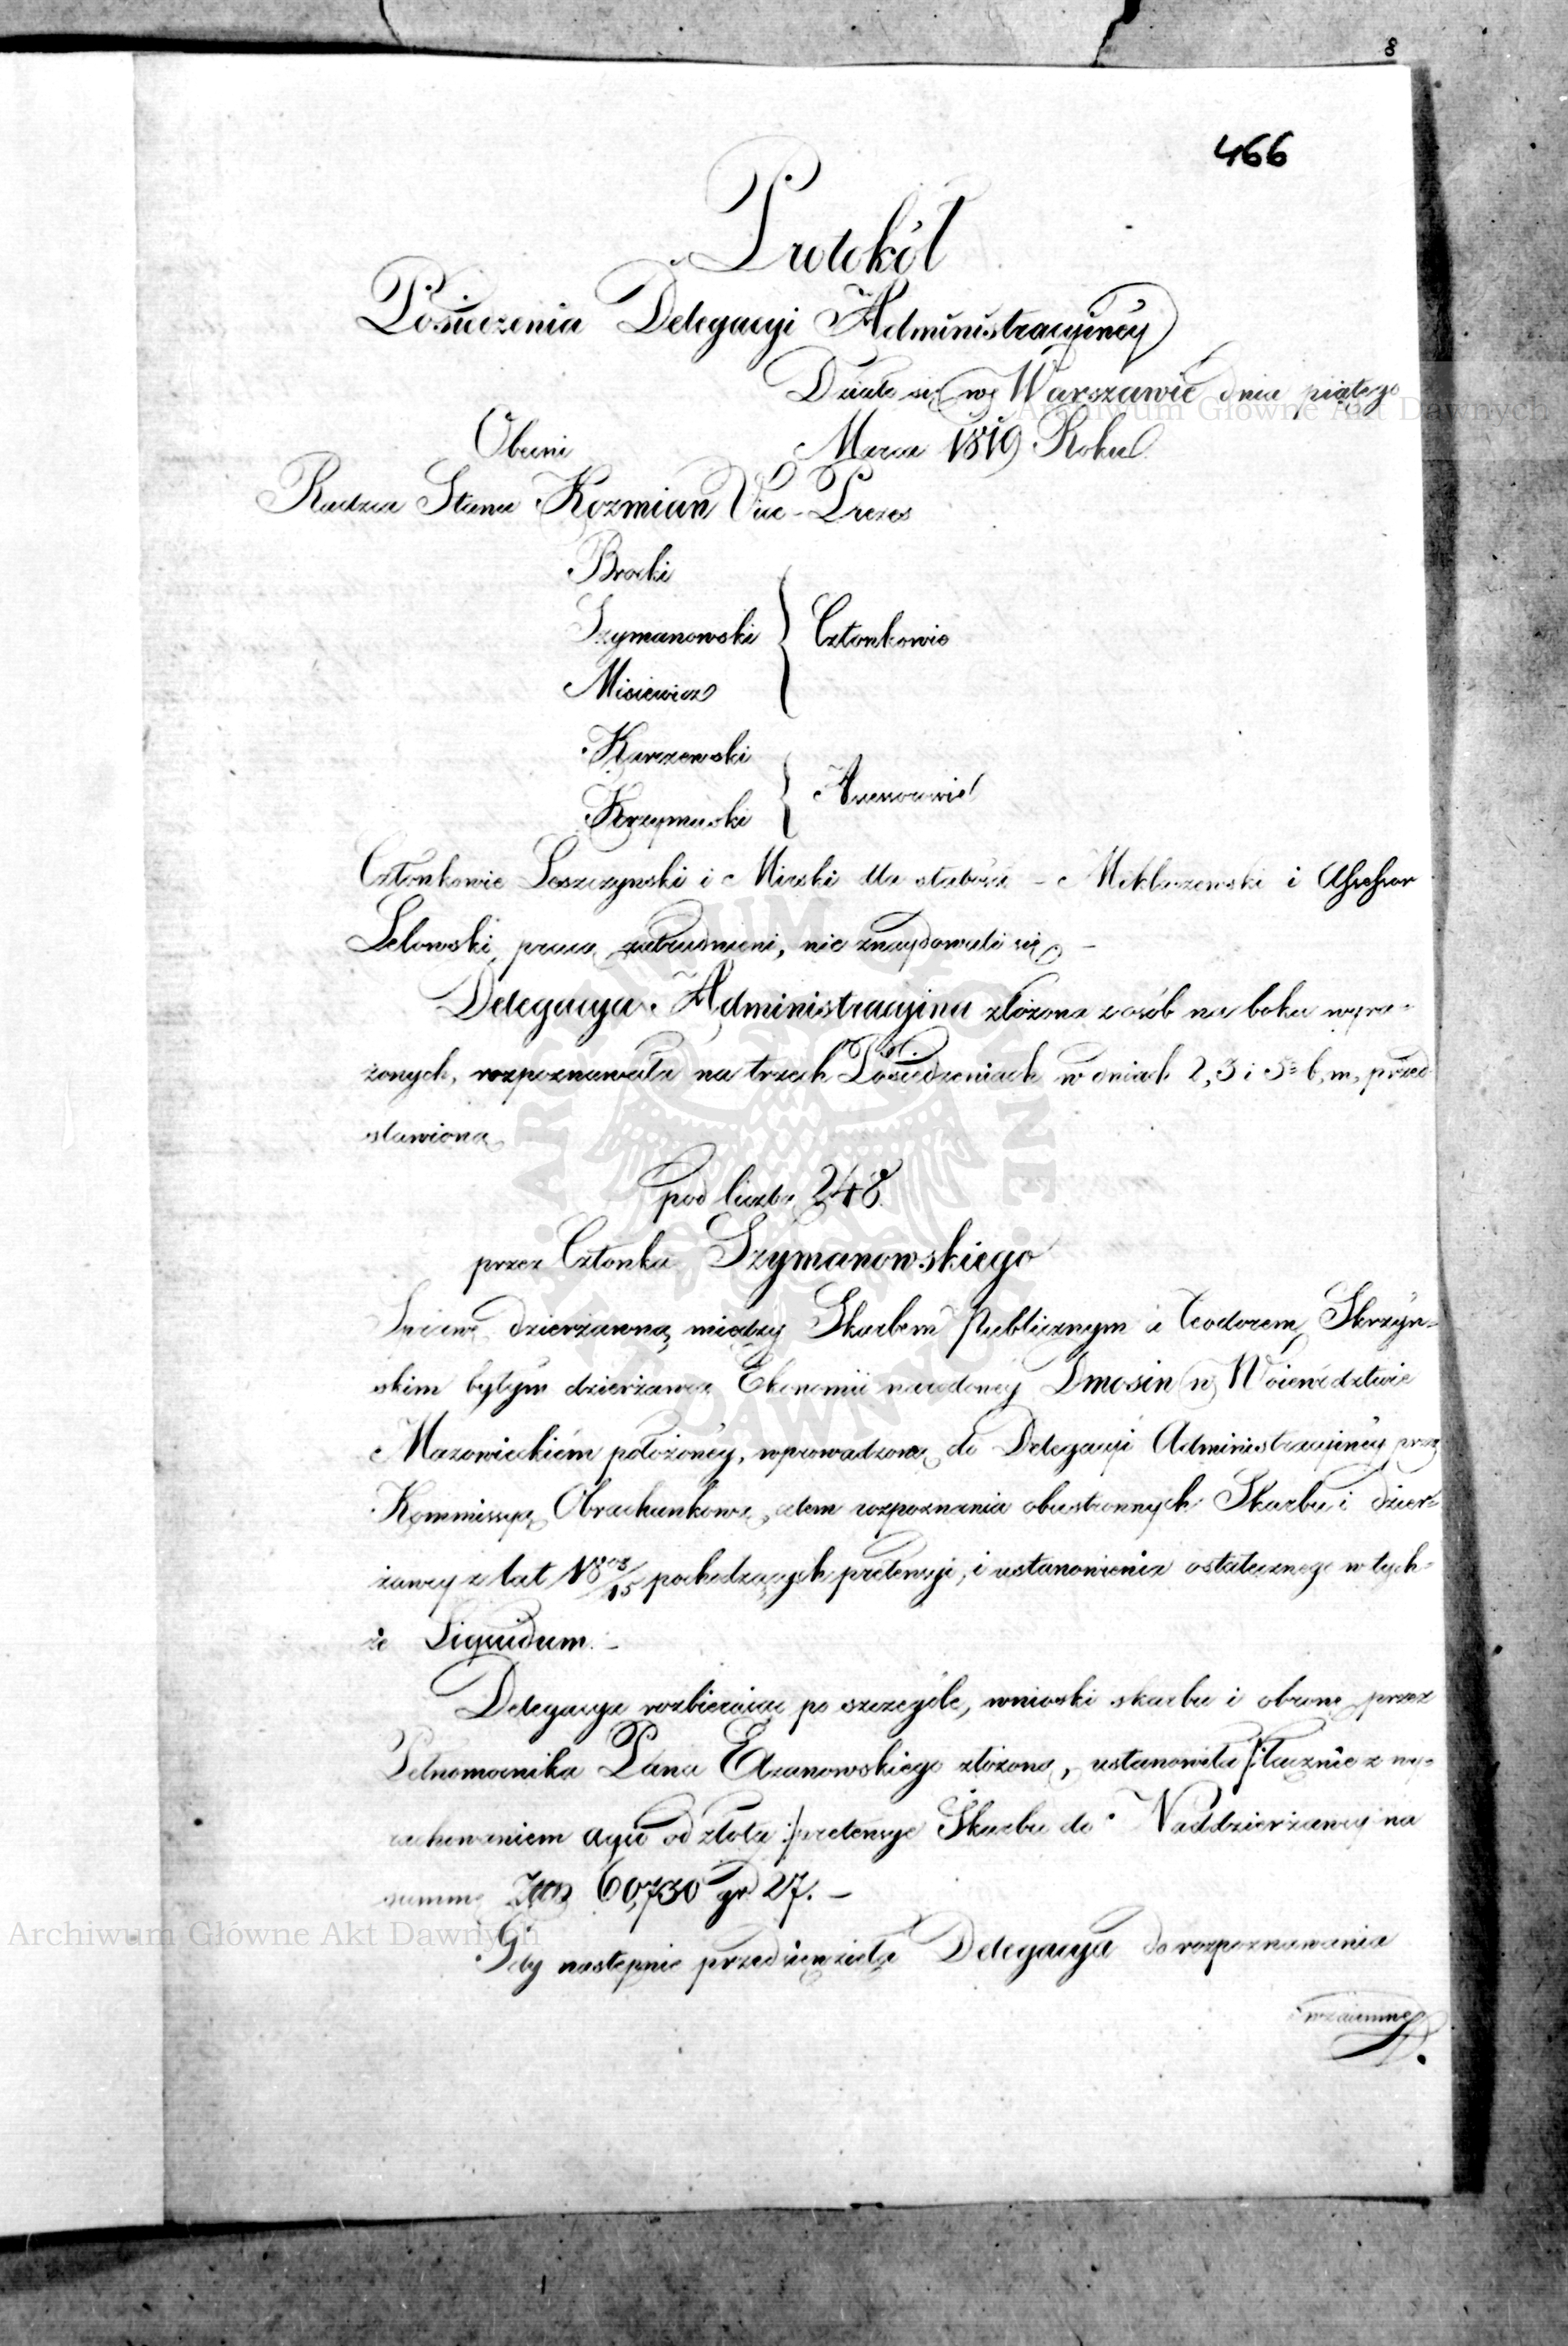 8
466
Protokół
Posiedzenia Delegacyi Administracyinéy
Działo się w Warszawie dnia piątego
Obecni Marca 1819 Roku
Radzca Stanu Kozmian Vice-Prezes
Brocki
Szymanowski } Członkowie
Misiewicz
Karczewski
Krzymuski } Assessorowie
Członkowie Leszczynski i Mirski dla słabości - Miklaszewski i Assessor
Lelowski pracą zatrudnieni, nie znaydowali się -
Delegacya Administracyina złożona z osób na boku wyra-
żonych, rozpoznawała na trzech Posiedzeniach w dniach 2, 3 i 5 b. m. przed
stawioną
pod liczbą 248.
przez Członka Szymanowskiego
Sprawę dzierżawną między Skarbem Publicznym a Teodorem Skrzyn-
skim byłym dzierżawcą Ekonomii narodowey Dmosin w Woiewództwie
Mazowieckiém położonéy, wprowadzoną do Delegacyi Administracyinéy przez
Kommissyą Obrachunkową, celem rozpoznania obustronnych Skarbu i dzier-
żawcy z lat 1808/15 pochodzących pretensyi, i ustanowienia ostatecznego w tych-
że Liquidum. -
Delegacya rozbieraiąc po szczególe, wnioski skarbu i obronę przez
Pełnomocnika Pana Ezanowskiego złożoną, ustanowiła /:łącznie z wy-
rachowaniem agio od złota:/ pretensye Skarbu do Naddzierżawcy na
summę Złp 60,730 gr 27. -
Gdy następnie przedsięwzięła Delegacya do rozpoznawania
wzaiemne
Archiwum Główne Akt Dawnych
Archiwum Główne Akt Dawnych
ARCHIWUM GŁÓWNE AKT DAWNYCH